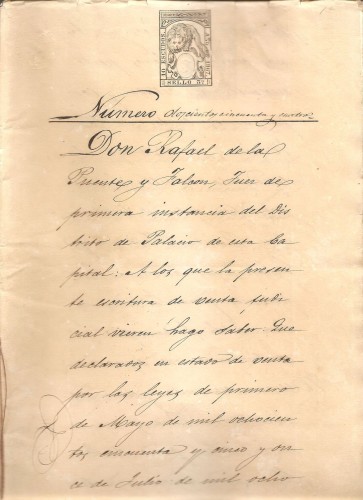 10 ESCUDOS
SELLO
Número doscientos cincuenta y cuatro
Don Rafael de la
Puente y Falcon, Juez de
primera instancia del Dis
trito de Palacio de esta Ca
pital: A los que la presen
te escritura de venta judi
cial vieren hago saber: Que
declarados en estado de venta
por las leyes de primero
de Mayo de mil ochocien
tos cincuenta y cinco y on
ce de Julio de mil ocho